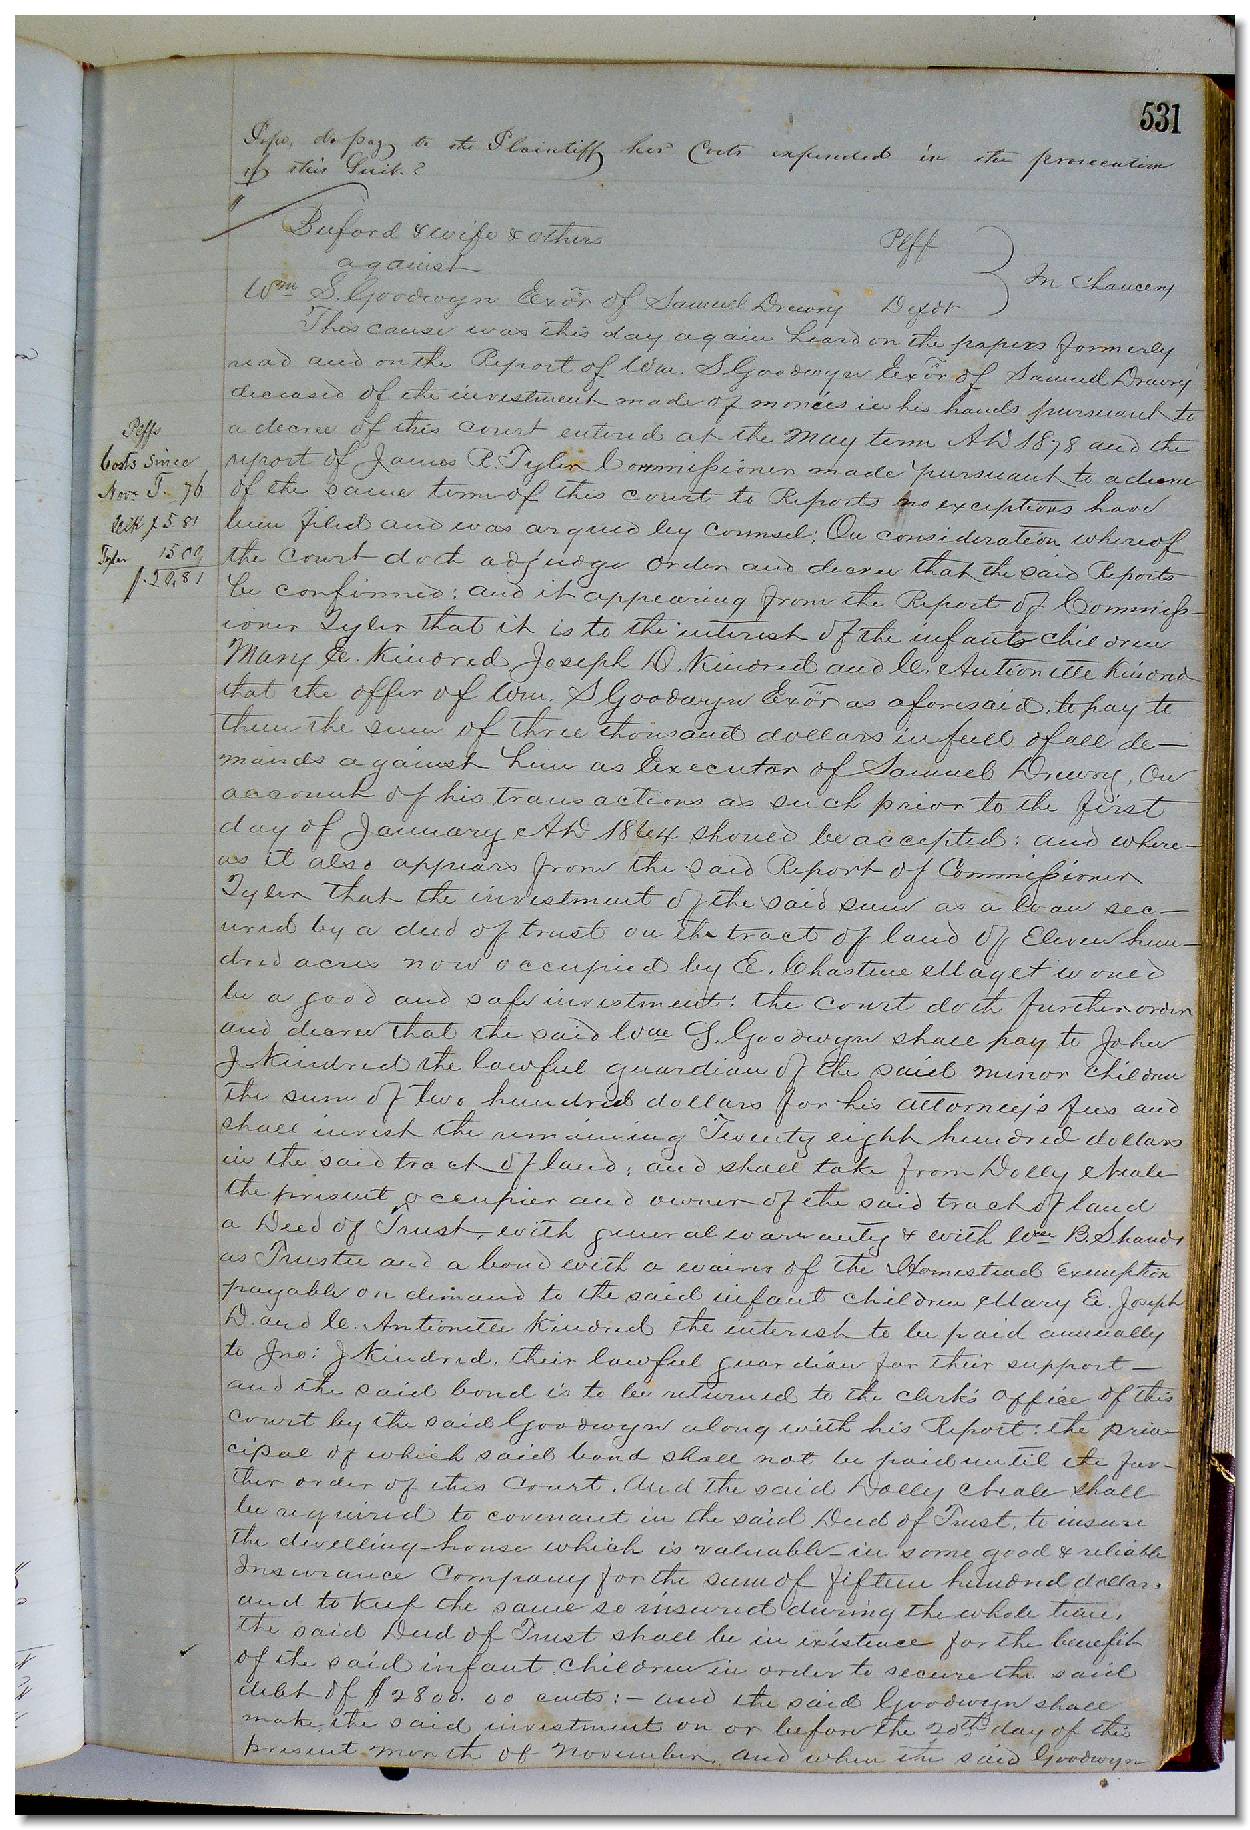 531
do pay to the Plaintiff her Costs expended in the prosecution
of this Suit.
Buford & wife & others Plff
against In Chancery
Wm S. Goodwyn Exor of Samuel Drewry Defdt
This cause was this day again heard on the papers formerly
read and on the Report of Wm. S Goodwyn Exor of Samuel Drewry
deceased of the investment made of monies in his hands pursuant to
a decree of this court entered at the May term AD 1878 and the
report of James R. Tyler Commissioner made pursuant to a decree
of the same term of this court to Reports no exceptions have
been filed and was argued by counsel: On consideration whereof
the Court doth adjudge order and decree that the said Reports
be confirmed: and it appearing from the Report of Commiss-
ioner Tyler that it is to the interest of the infants children
Mary E. Kindred, Joseph D. Kindred and C. Antionette Kindred
that the offer of Wm. S Goodwyn Exor as aforesaid, to pay to
them the sum of three thousand dollars in full of all de-
mands against him as Executor of Samuel Drewry, On
account of his transactions as such prior to the first
day of January AD 1864 should be accepted: and where-
as it also appears from the said Report of Commissioner
Tyler that the investment of the said sum as a loan sec-
ured by a deed of trust on the tract of land of Eleven hun-
dred acres now occupied by E. Chastine Maget would
be a good and safe investment: the Court doth further order
and decree that the said Wm S. Goodwyn shall pay to John
J. Kindred the lawful guardian of the said minor children
the sum of two hundred dollars for his attorney's fees and
shall invest the remaining Twenty eight hundred dollars
in the said tract of land; and shall take from Dolly Neale
the present occupier and owner of the said tract of land
a Deed of Trust, with general warranty & with Wm B. Shands
as Trustee and a bond with a waiver of the Homestead exemption
payable on demand to the said infant children Mary E. Joseph
D. and C. Antionette Kindred the interest to be paid annually
to Jno: J Kindred, their lawful guardian for their support-
and the said bond is to be returned to the clerk's office of this
court by the said Goodwyn along with his Report: the prin-
cipal of which said bond shall not be paid until the fur-
ther order of this Court. And the said Dolly Neale shall
be required to covenant in the said Deed of Trust, to insure
the dwelling-house which is valuable in some good & reliable
Insurance Company for the sum of fifteen hundred dollars
and to keep the same so insured during the whole time,
the said Deed of Trust shall be in existence for the benefit
of the said infant children in order to secure the said
debt of $2800.00 cents:- and the said Goodwyn shall
make the said investment on or before the 20th day of this
present month of November, and when the said Goodwyn
Plffs
Costs since
Nov. T. 76
Clk $5 81
Tyler 15 00
$20,81